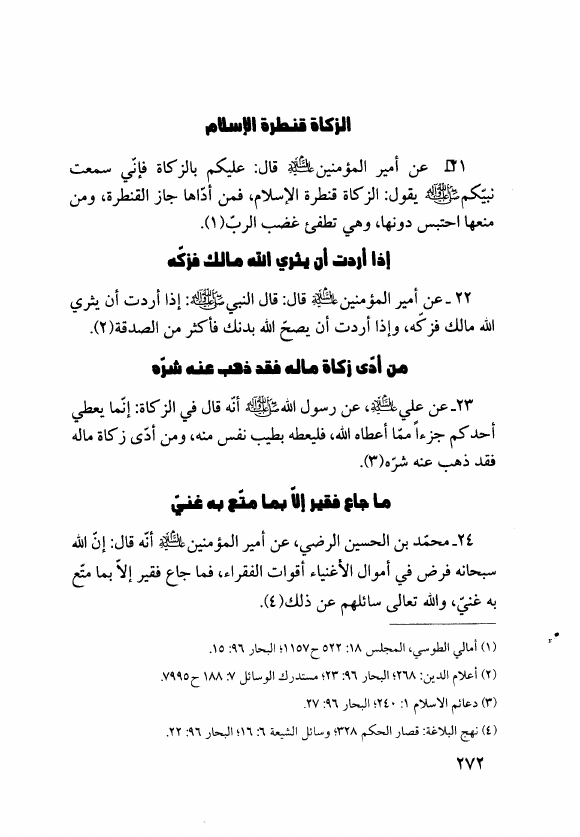 الزكاة قنطرة الإسلام
٢١ـ عن أمير المؤمنين عليه السلام قال: عليكم بالزكاة فإنّي سمعت
نبيّكم صلى الله عليه وآله يقول: الزكاة قنطرة الإسلام، فمن أدّاها جاز القنطرة، ومن
منعها احتبس دونها، وهي تطفئ غضب الربّ(١).
إذا أردت أن يثري الله مالك فزكّه
٢٢ ـ عن أمير المؤمنين عليه السلام قال: قال النبي صلى الله عليه وآله: إذا أردت أن يثري
الله مالك فزكّه، وإذا أردت أن يصحّ الله بدنك فأكثر من الصدقة(٢).
من أدّى زكاة ماله فقد ذهب عنه شرّه
٢٣ـ عن علي عليه السلام، عن رسول الله صلى الله عليه وآله أنّه قال في الزكاة: إنّما يعطي
أحدكم جزءاً ممّا أعطاه الله، فليعطه بطيب نفس منه، ومن أدّى زكاة ماله
فقد ذهب عنه شرّه(٣).
ما جاع فقير إلاّ بما متّع به غنيّ
٢٤ـ محمّد بن الحسين الرضي، عن أمير المؤمنين عليه السلام أنّه قال: إنّ الله
سبحانه فرض في أموال الأغنياء أقوات الفقراء، فما جاع فقير إلاّ بما متّع
به غنيّ، والله تعالى سائلهم عن ذلك(٤).
(١) أمالي الطوسي، المجلس ١٨: ٥٢٢ ح١١٥٧؛ البحار ٩٦: ١٥.
(٢) أعلام الدين: ٢٦٨؛ البحار ٩٦: ٢٣؛ مستدرك الوسائل ٧: ١٨٨ ح٧٩٩٥.
(٣) دعائم الاسلام ١: ٢٤٠؛ البحار ٩٦: ٢٧.
(٤) نهج البلاغة: قصار الحكم ٣٢٨؛ وسائل الشيعة ٦: ١٦؛ البحار ٩٦: ٢٢.
٢٧٢